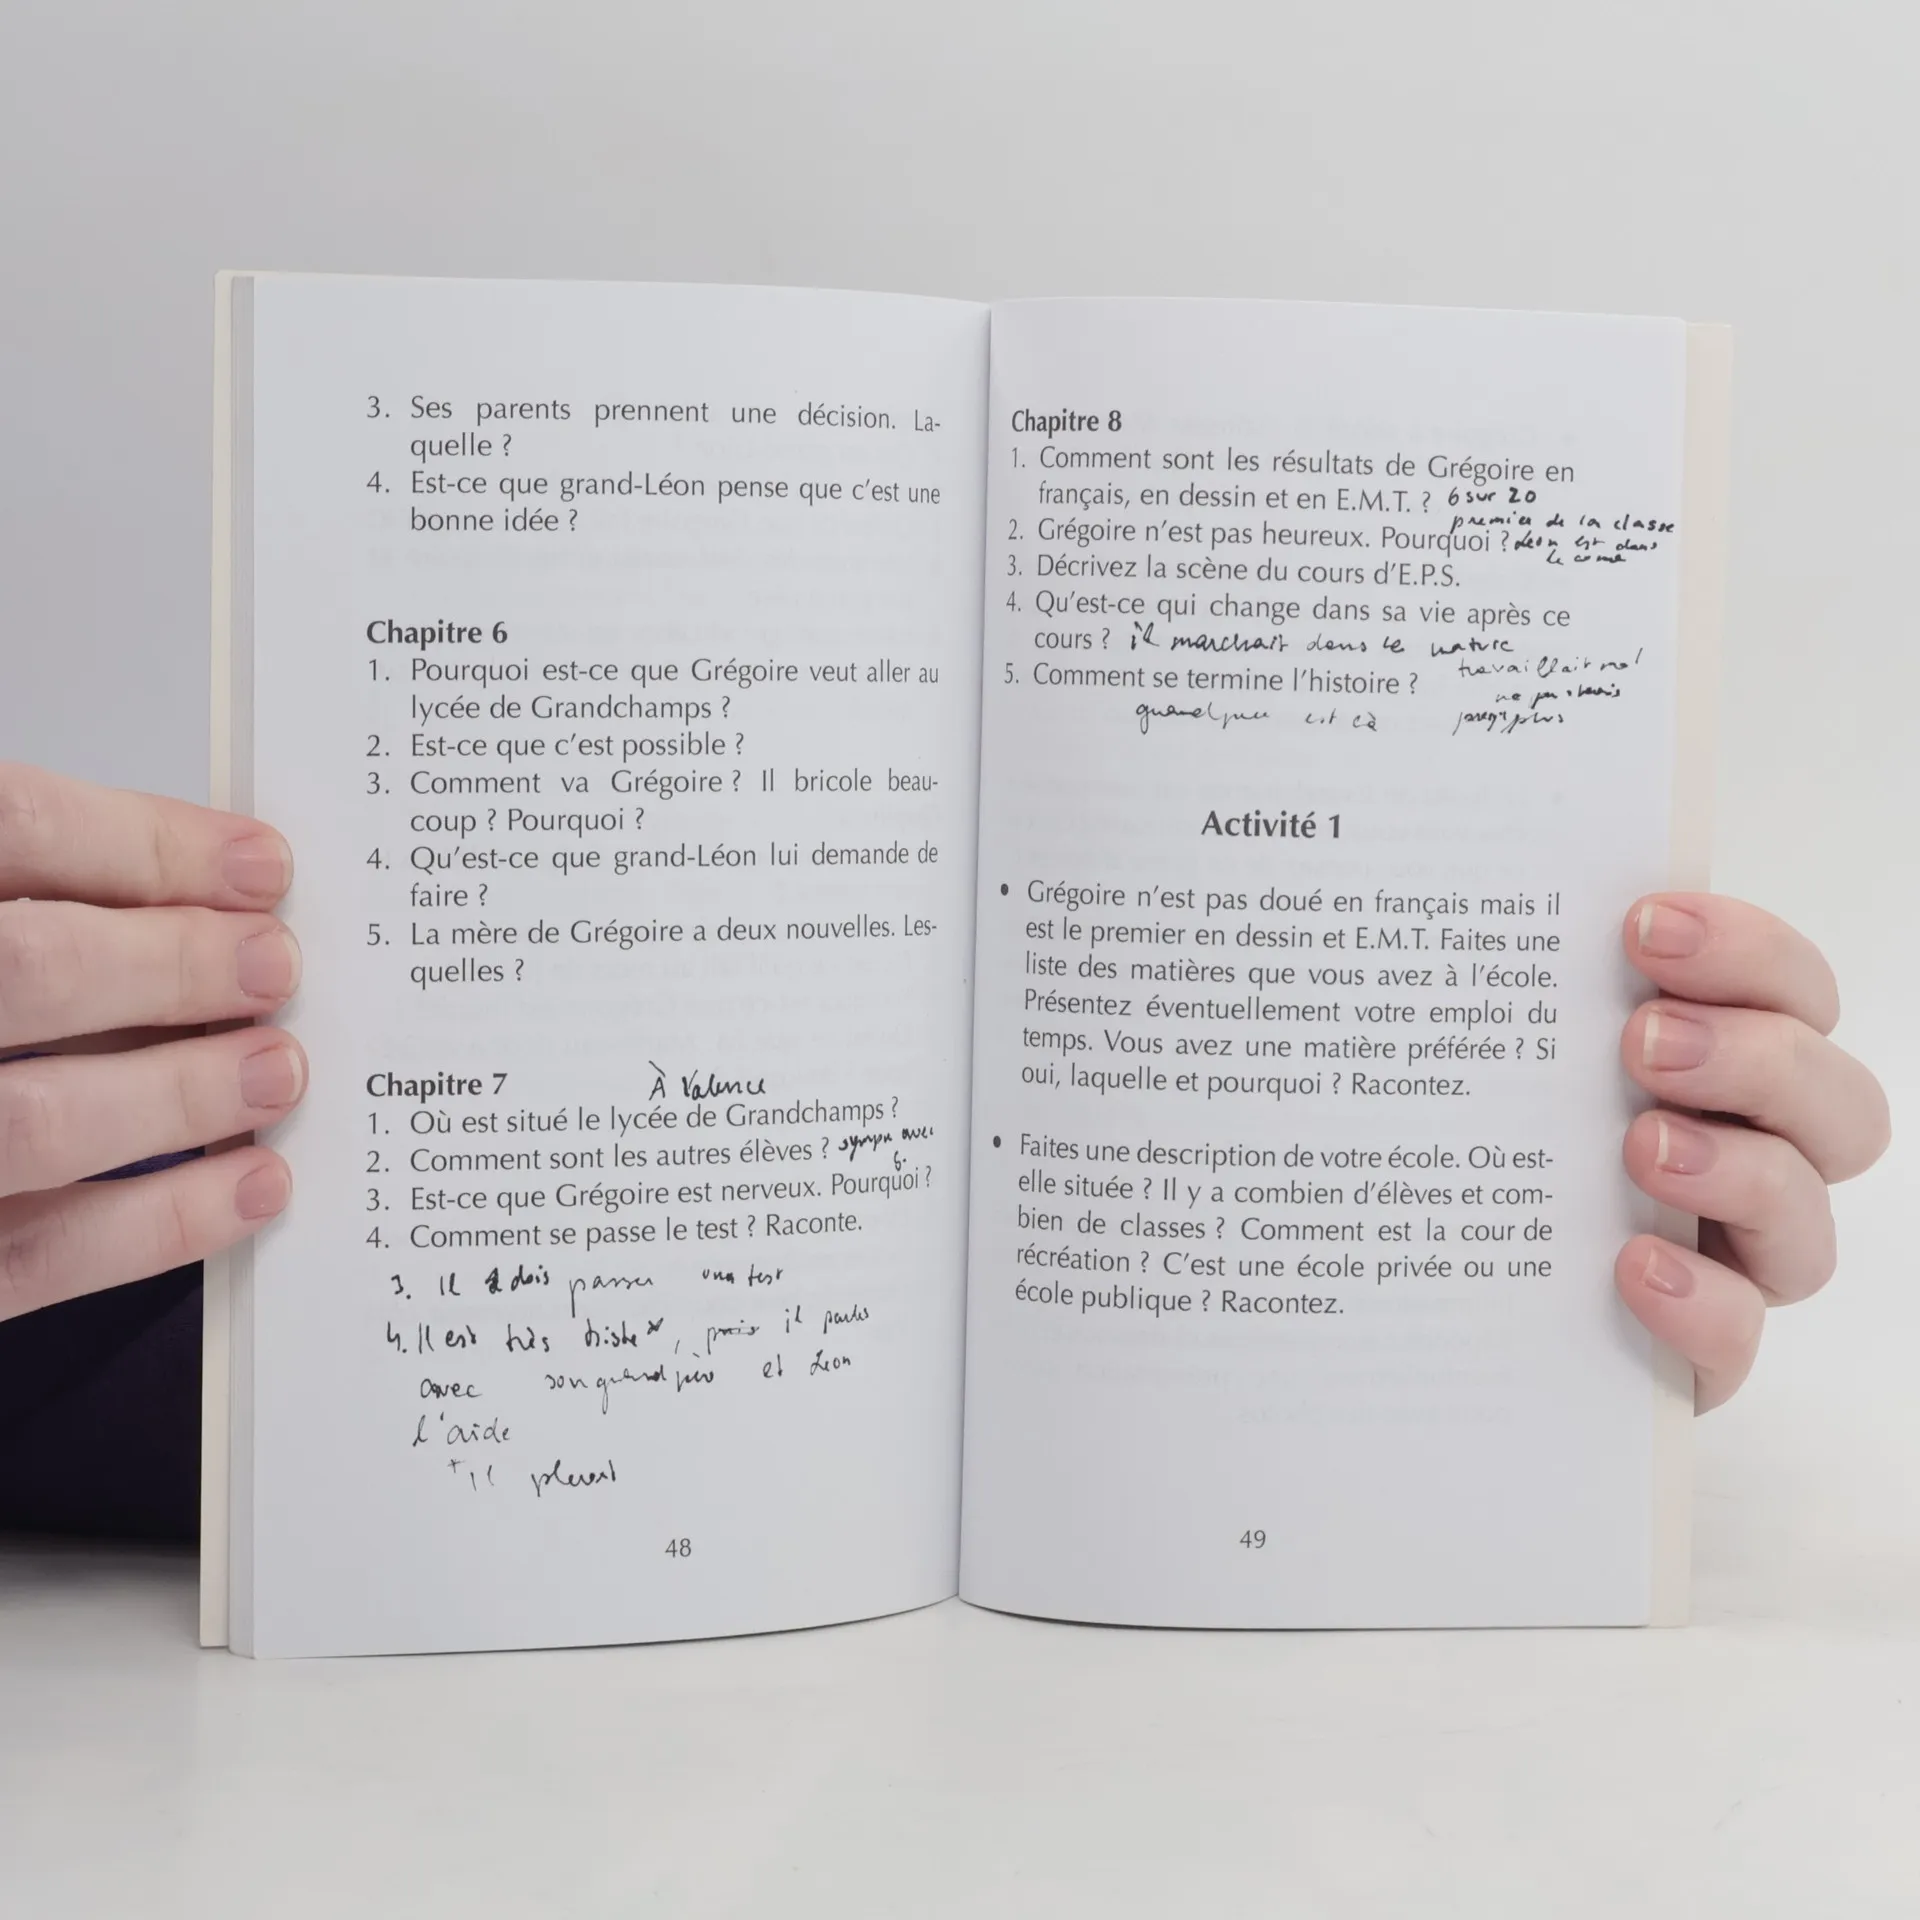 3. Ses parents prennent une décision. La-
quelle ?
4. Est-ce que grand-Léon pense que c'est une
bonne idée ?
Chapitre 6
1. Pourquoi est-ce que Grégoire veut aller au
lycée de Grandchamps ?
2. Est-ce que c'est possible ?
3. Comment va Grégoire ? Il bricole beau-
coup ? Pourquoi ?
4. Qu'est-ce que grand-Léon lui demande de
faire ?
5. La mère de Grégoire a deux nouvelles. Les-
quelles ?
À Valence
Chapitre 7
1. Où est situé le lycée de Grandchamps ?
2. Comment sont les autres élèves ? sympa avec
G.
3. Est-ce que Grégoire est nerveux. Pourquoi ?
4. Comment se passe le test ? Raconte.
3. Il dois passer una test
4. Il est très triste, puis il parles
avec son grand père et Leon
l'aide
+ il pleurait
48
Chapitre 8
1. Comment sont les résultats de Grégoire en
français, en dessin et en E.M.T. ? 6 sur 20
premier de la classe
2. Grégoire n'est pas heureux. Pourquoi ? Leon est dans
le coma
3. Décrivez la scène du cours d'E.P.S.
4. Qu'est-ce qui change dans sa vie après ce
cours ? il marchait dans le nature
travaillait mal
5. Comment se termine l'histoire ?
ne
est plus
49
Activité 1
• Grégoire n'est pas doué en français mais il
est le premier en dessin et E.M.T. Faites une
liste des matières que vous avez à l'école.
Présentez éventuellement votre emploi du
temps. Vous avez une matière préférée ? Si
oui, laquelle et pourquoi ? Racontez.
• Faites une description de votre école. Où est-
elle située ? Il y a combien d'élèves et com-
bien de classes ? Comment est la cour de
récréation ? C'est une école privée ou une
école publique ? Racontez.